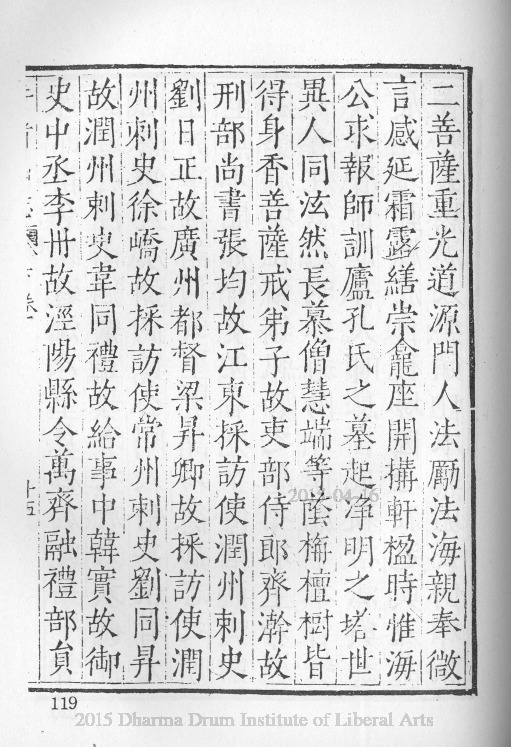 二菩薩重光道源門人法勵法海親奉微
言感延霜露繕崇龕座開搆軒楹時惟海
公求報師訓廬孔氏之墓起淨明之塔世
異人同泫然長慕僧慧端等蔭栴檀樹皆
得身香菩薩戒弟子故吏部侍郎齊澣故
刑部尚書張均故江東採訪使潤州刺史
劉日正故廣州都督梁昇卿故採訪使潤
州刺史徐嶠故採訪使常州刺史劉同昇
故潤州刺史韋同禮故給事中韓賞故御
史中丞李丹故涇陽縣令萬齊融禮部員
十五
119
2015 Dharma Drum Institute of Liberal Arts